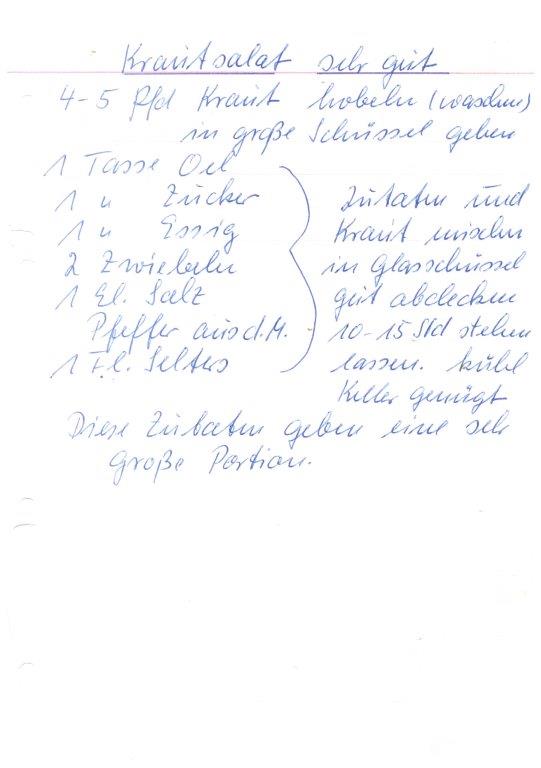 Krautsalat sehr gut
4-5 Pfd Kraut hobeln (waschen)
in große Schüssel geben
1 Tasse Oel
1 " Zucker
1 " Essig
2 Zwiebeln
1 El. Salz
Pfeffer aus d. M.
1 Fl. Selters
Zutaten und
Kraut mischen
in Glasschüssel
gut abdecken
10-15 Std stehen
lassen. kühl
Keller genügt
Diese Zutaten geben eine sehr
große Portion.